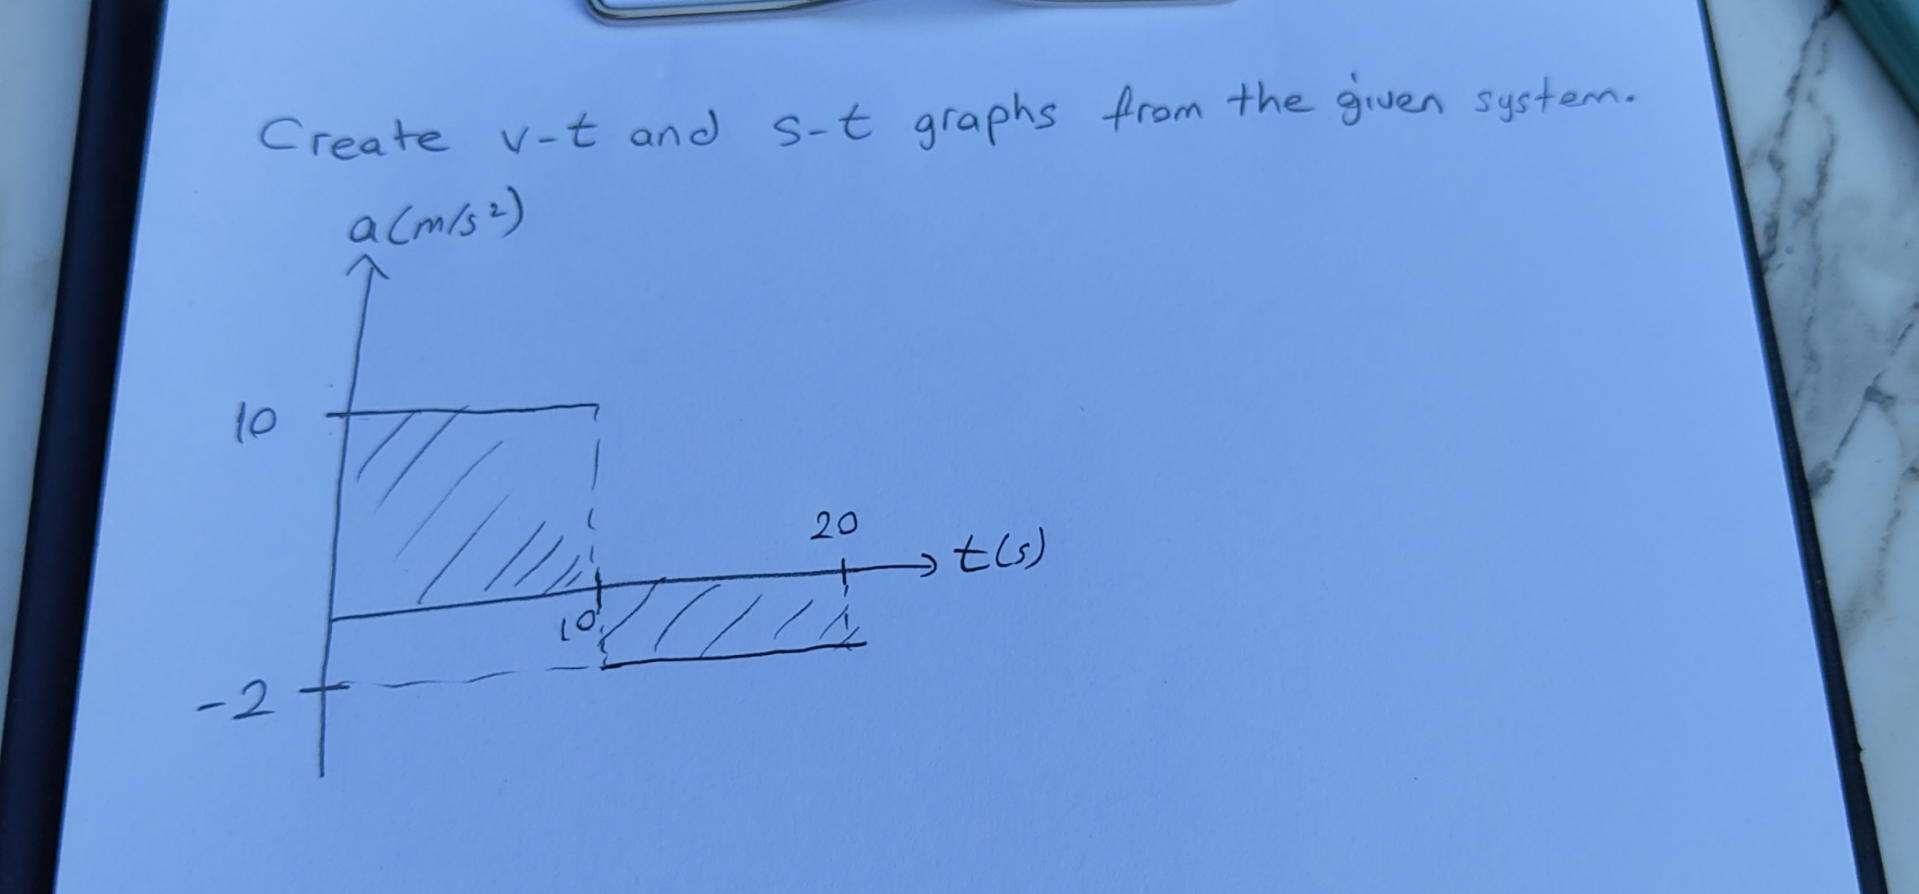 Create v-t and s-t graphs from the given system.
a(m/s²)
10
20
t(s)
10
-2